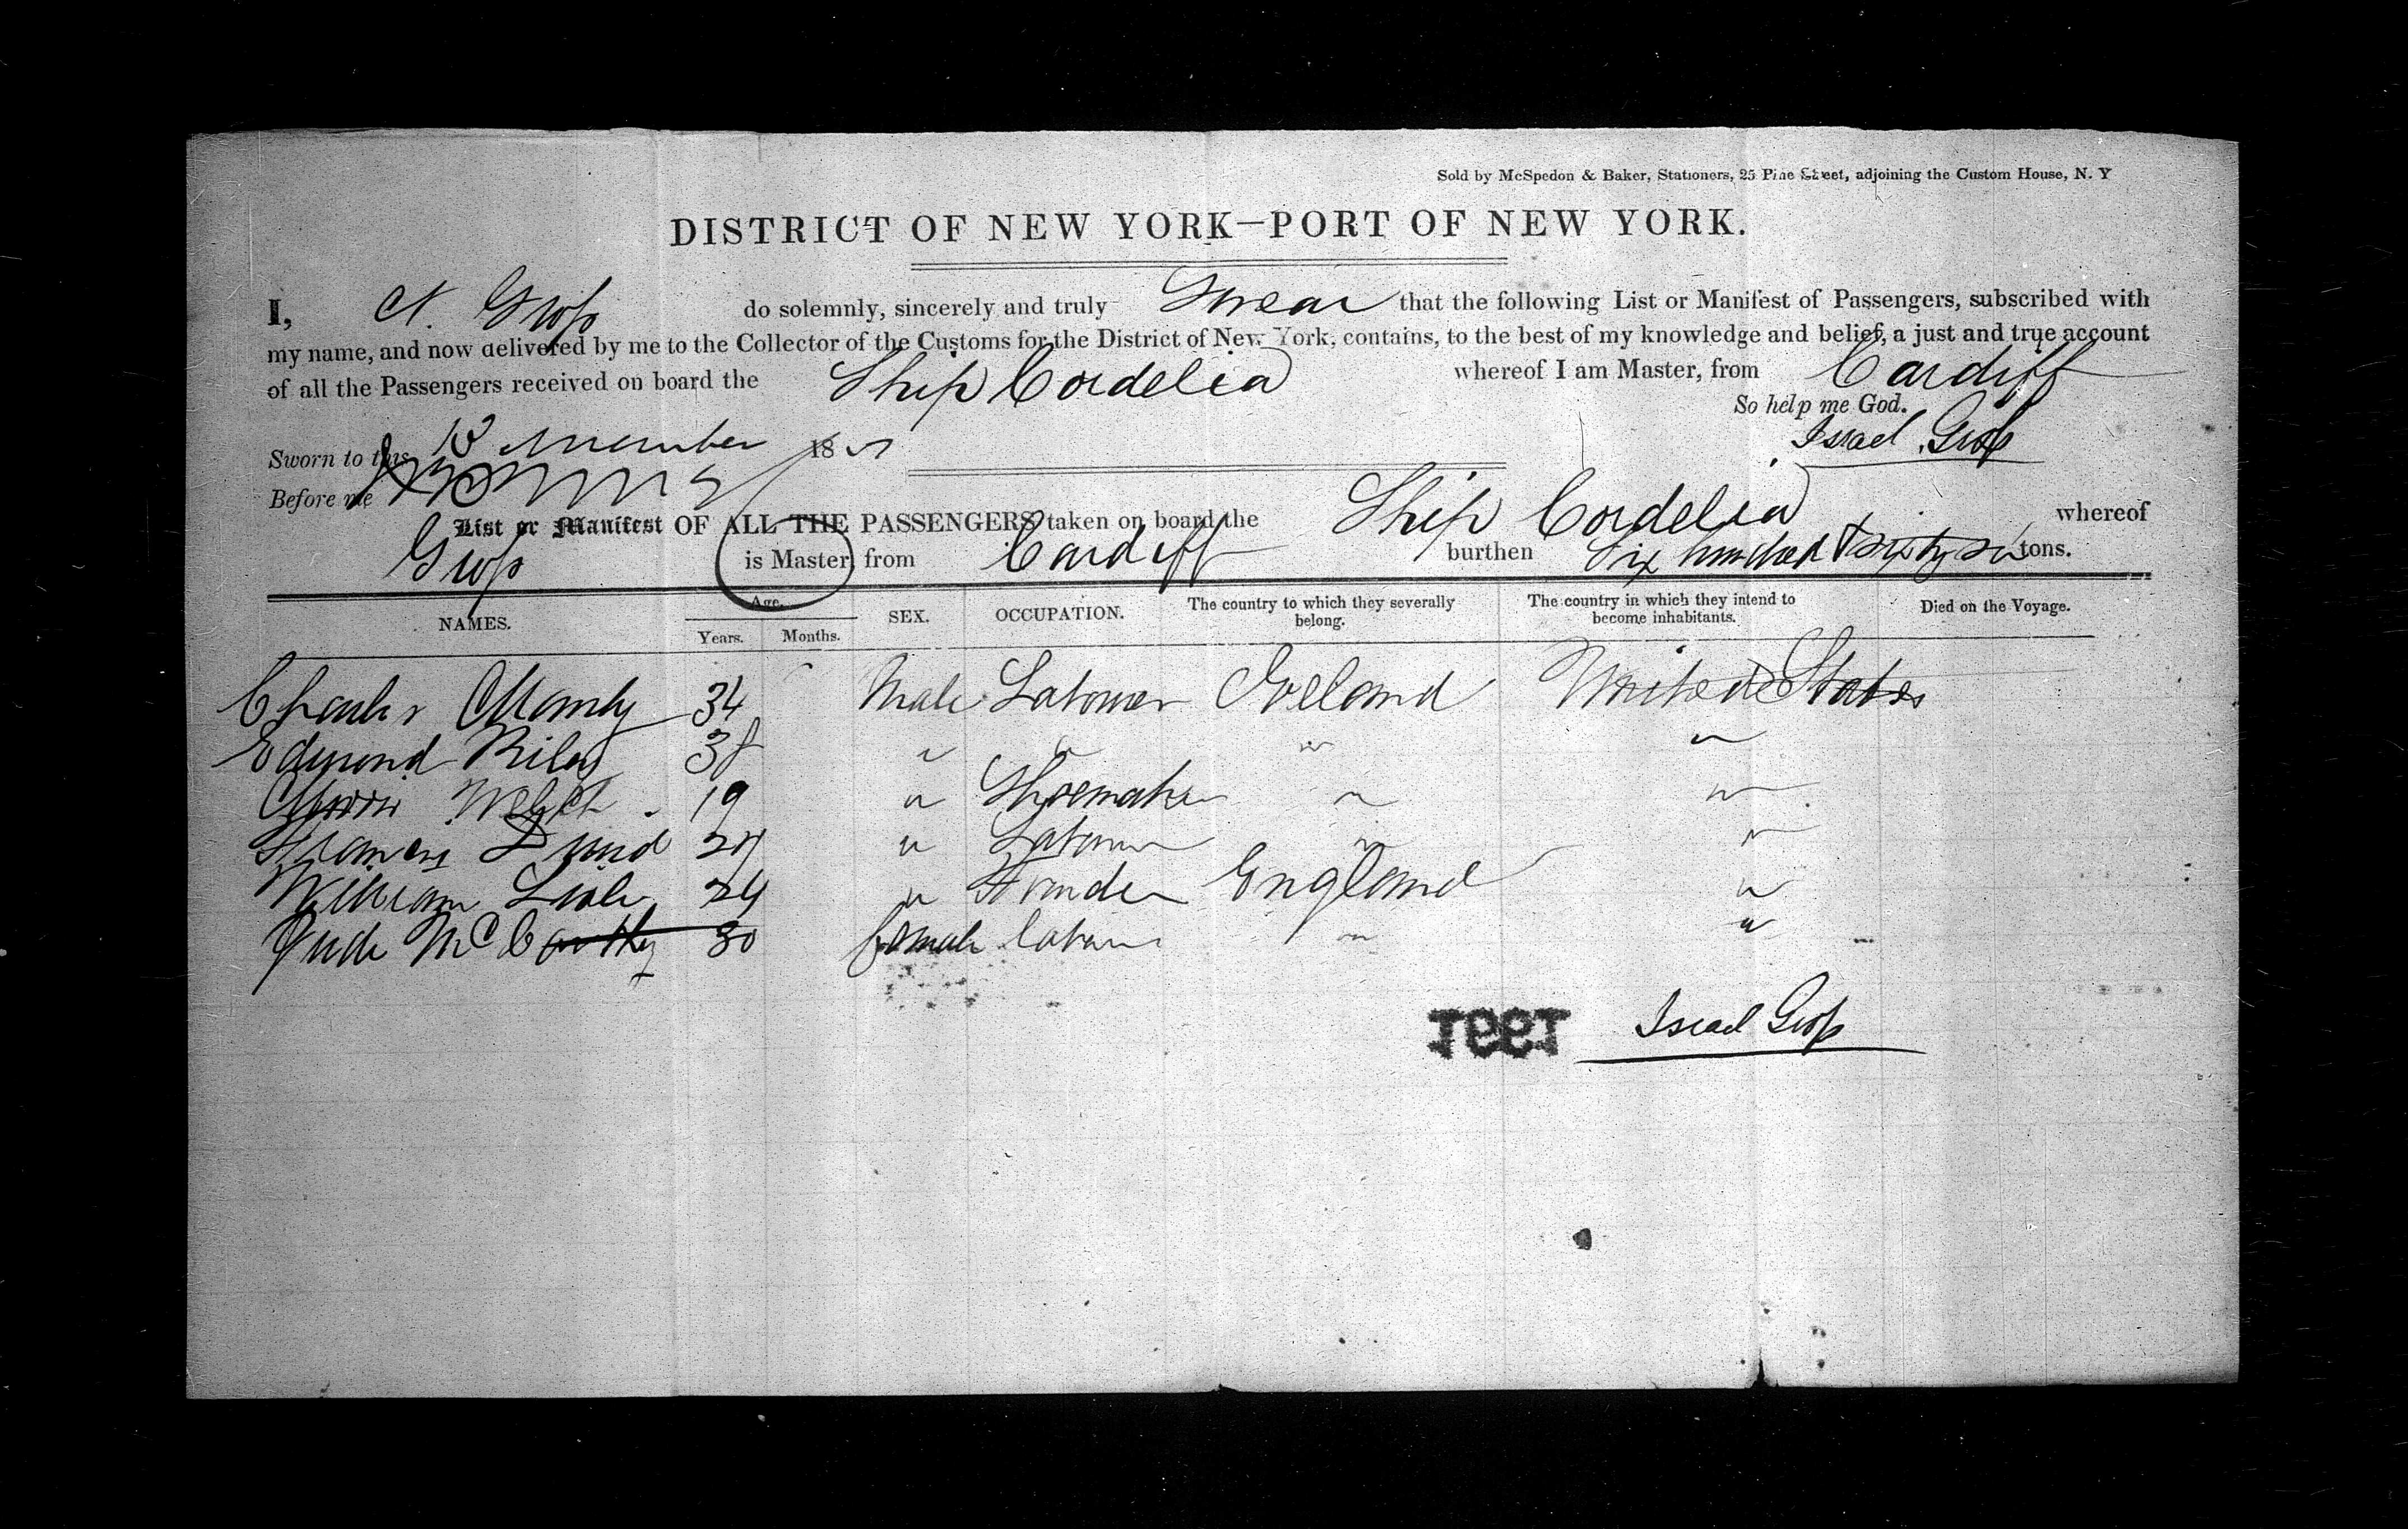 Sold by McSpedon & Baker, Stationers, 25 Pine Street, adjoining the Custom House, N. Y
DISTRICT OF NEW YORK—PORT OF NEW YORK.
I, Gross do solemnly, sincerely and truly Swear that the following List or Manifest of Passengers, subscribed with
my name, and now delivered by me to the Collector of the Customs for the District of New York, contains, to the best of my knowledge and belief, a just and true account
of all the Passengers received on board the Ship Cordelia whereof I am Master, from Cardiff
So help me God.
Sworn to this 13 18 Israel Gross
Before me
List or Manifest OF ALL THE PASSENGERS taken on board the Ship Cordelia whereof
Gross is Master, from Cardiff burthen Six hundred & sixty six tons.
NAMES. Age. Years. Months. SEX. OCCUPATION. The country to which they severally belong. The country in which they intend to become inhabitants. Died on the Voyage.
Charles 34 Male Labourer Ireland United States
Edmond Riley 38 " " " "
Welch 19 " Shoemaker " "
" Labourer " "
William 24 " England "
McCarthy 30 female labourer " "
1991 Israel Gross